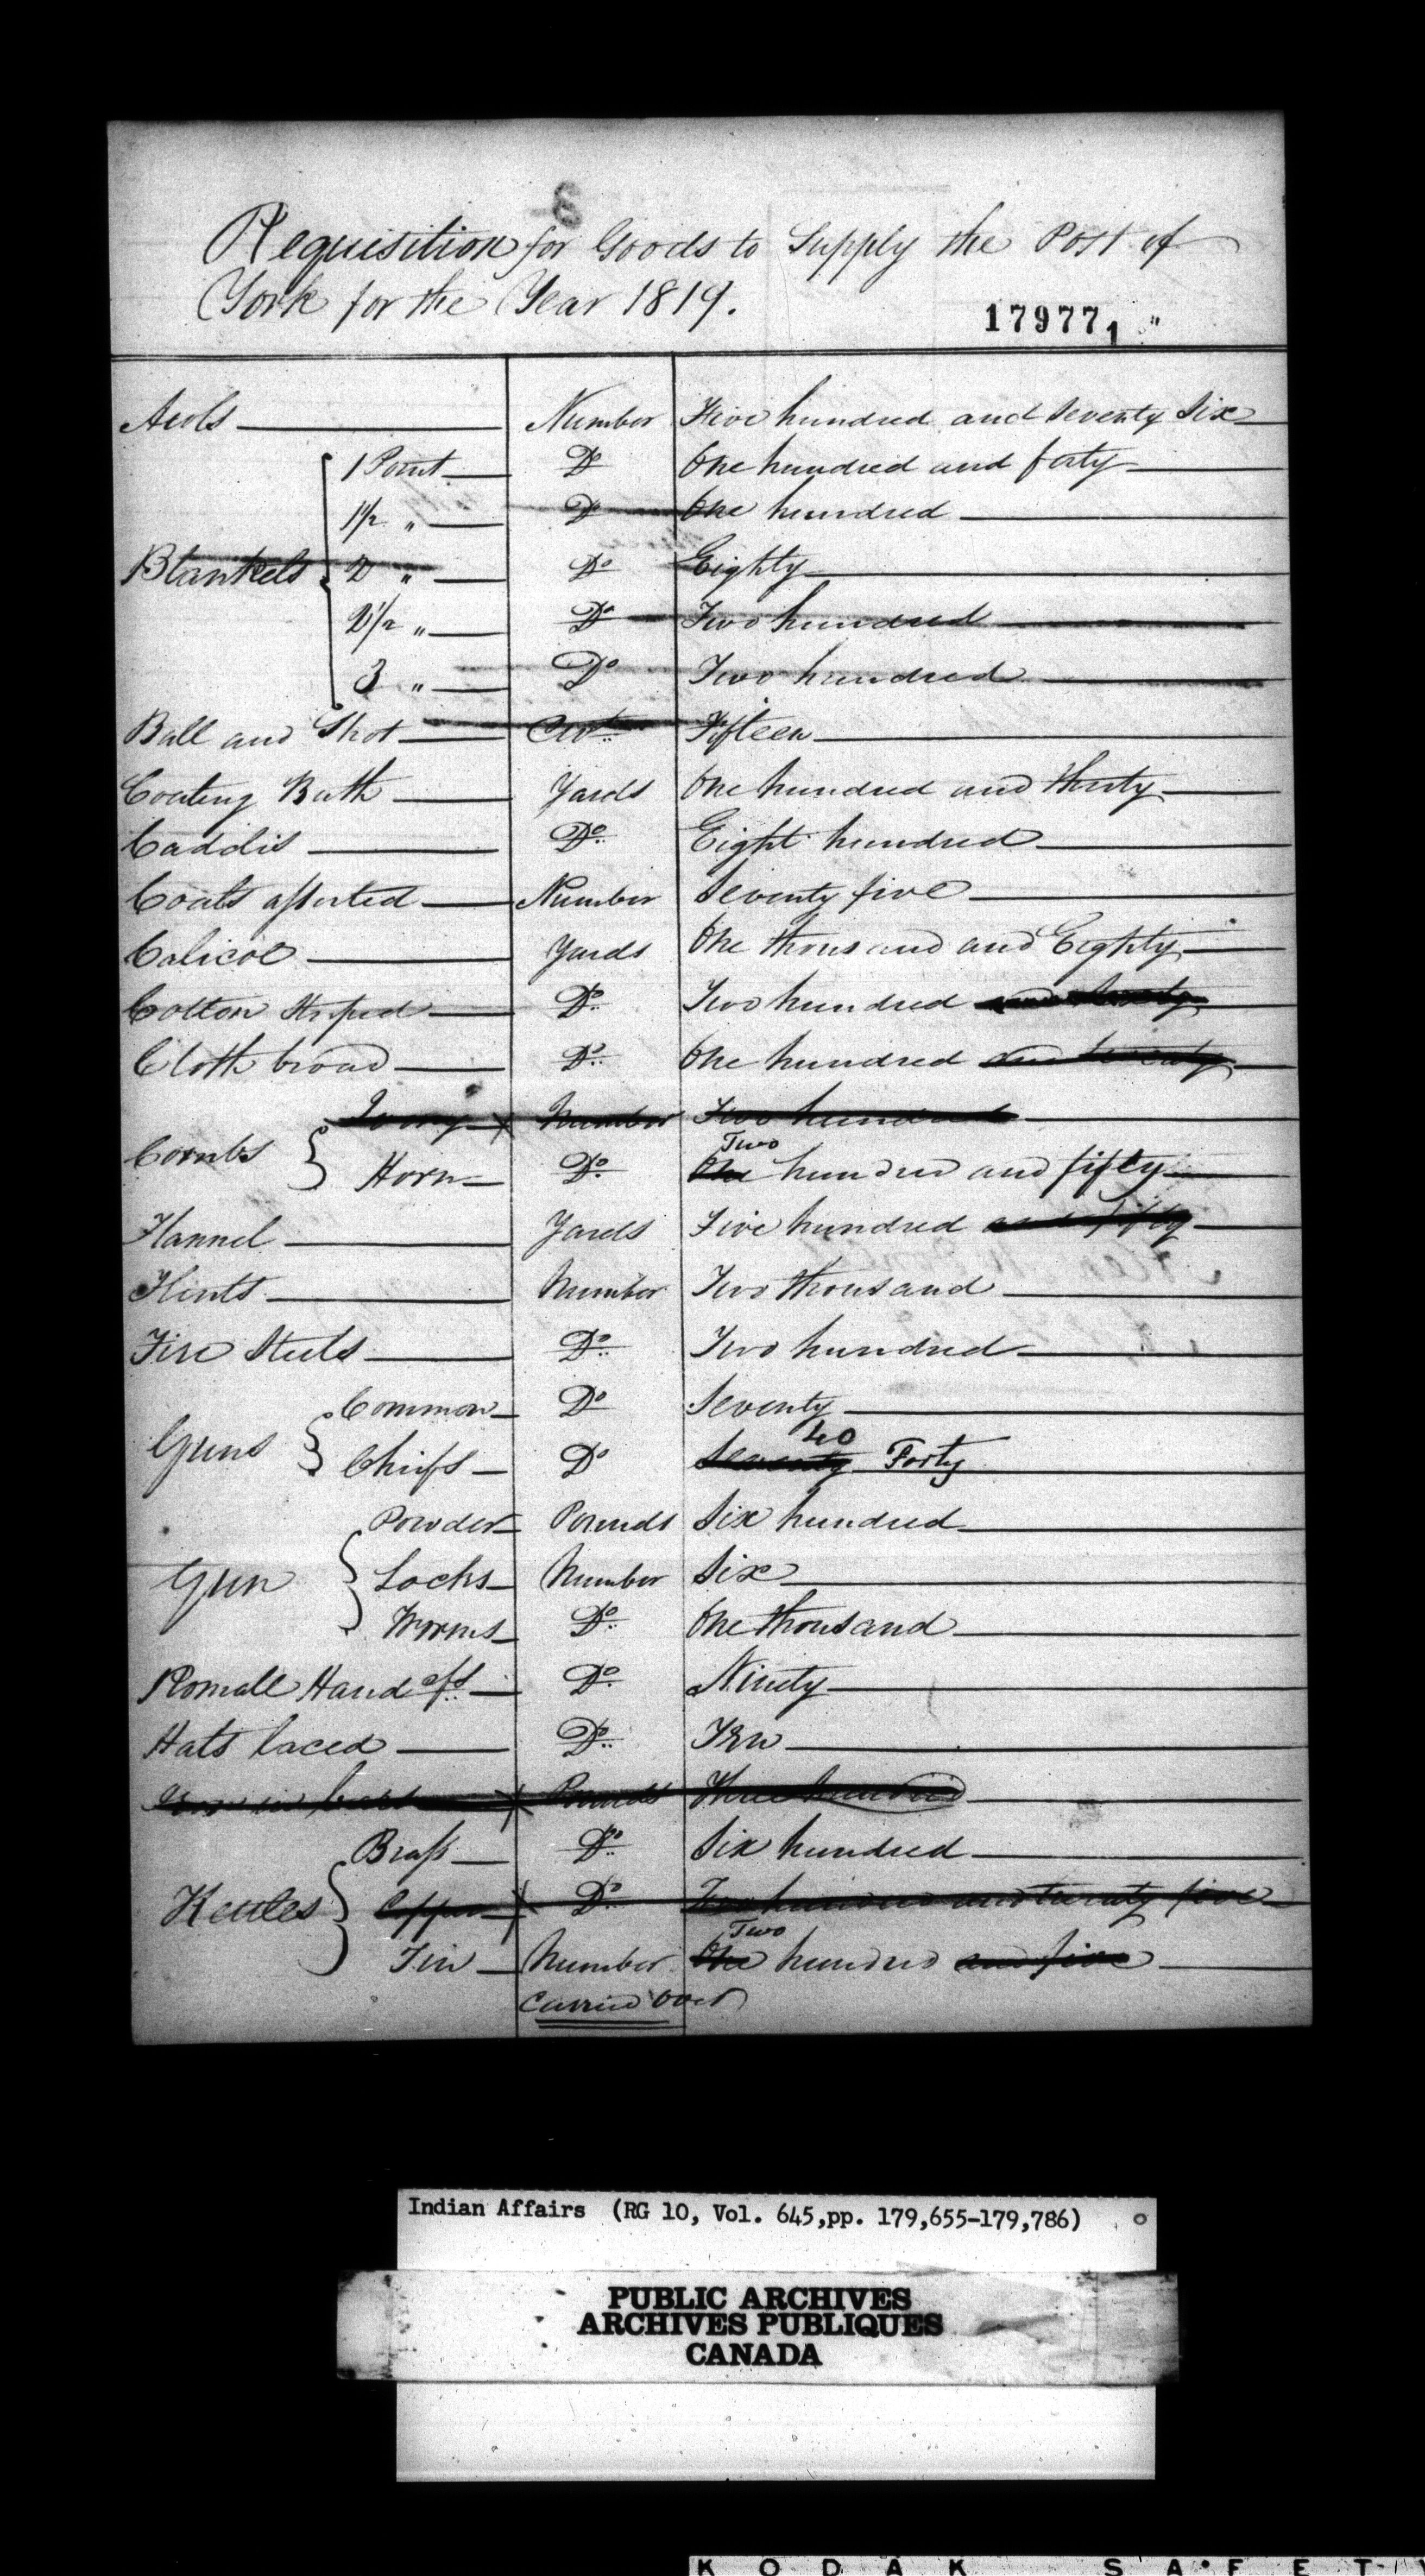 Requisition for Goods to Supply the Post of
York for the Year 1819.
179771 "
Awls Number Five hundred and Seventy Six
1 Point Do One hundred and forty
1½ " Do One hundred
Blankets 2 " Do Eighty
2½ " Do Two hundred
3 " Do Two hundred
Ball and Shot Cwt Fifteen
Coating Bath Yards One hundred and thirty
Caddis Do Eight hundred
Coats assorted Number Seventy five
Calicoe Yards One thousand and Eighty
Cotton Striped Do Two hundred
Cloth broad Do One hundred
Ivory Number Two hundred
Two
Combs Horn Do One hundred and fifty
Flannel Yards Five hundred and fifty
Flints Number Two thousand
Fire Steels Do Two hundred
Common Do Seventy
40
Guns Chiefs Do Seventy Forty
Powder Pounds Six hundred
Gun Locks Number Six
Worms Do One thousand
Romall Handkfs Do Ninety
Hats laced Do Ten
Iron in bars Pounds Three hundred
Brass Do Six hundred
Kettles Copper Do Two hundred and twenty five
Two
Tin Number One hundred and five
Carried over
Indian Affairs (RG 10, Vol. 645,pp. 179,655-179,786)
PUBLIC ARCHIVES
ARCHIVES PUBLIQUES
CANADA
KODAK SAFET